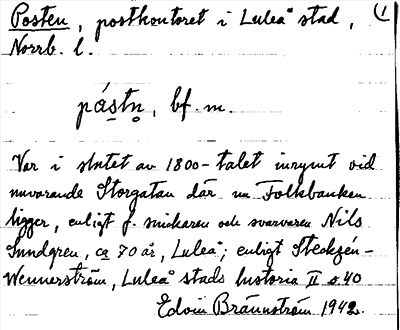 Posten, postkontoret i Luleå stad, 1
Norrb. l.
pástn̥, bf. m.
Var i slutet av 1800-talet inrymt vid
nuvarande Storgatan där nu Folkbanken
ligger, enligt f. snickaren och svarvaren Nils
Sundgren, ca 70 år, Luleå; enligt Steckzén-
Wennerström, Luleå stads historia II s. 40
Edvin Brännström 1942.